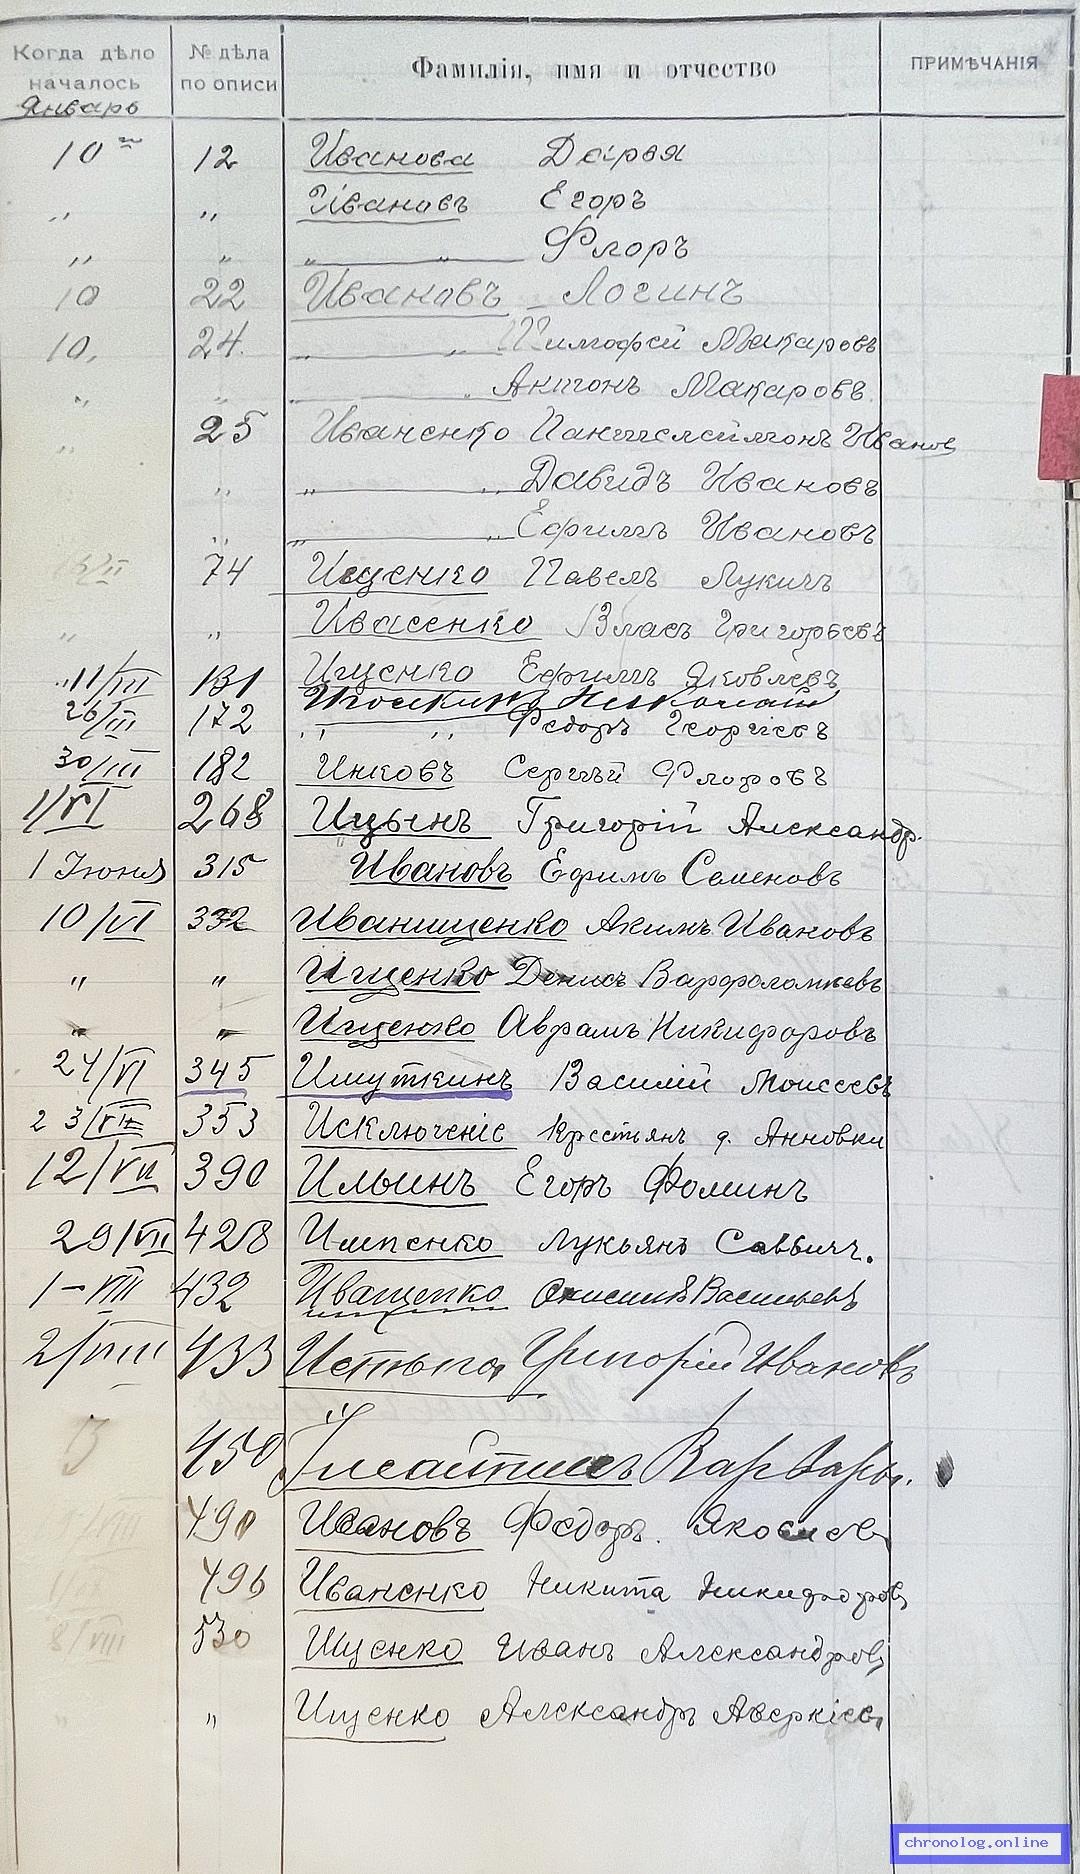 Когда дѣло началось № дѣла по описи Фамилія, имя и отчество ПРИМѢЧАНІЯ
Январь
10 12 Иванова Дарья
" " Ивановъ Егоръ
" " " " Флоръ
10 22 Ивановъ Логинъ
10. 24. " " Тимофей Макаровъ
" " " Антонъ Макаровъ.
" 25 Иваненко Пантелеймонъ Иванов
" " " Давидъ Ивановъ
" " " Ефимъ Ивановъ
74 Ищенко Павелъ Лукичъ
" " Ивасенко Власъ Григорьевъ
11/III 131 Ищенко Ефимъ Яковлевъ
Николай
26/III 172 " " Федоръ Георгіевъ
30/III 182 Инковъ Сергѣй Флоровъ
1/VI 268 Ицынъ Григорій Александр.
1 Іюня 315 Ивановъ Ефимъ Семеновъ
10/VI 332 Иванищенко Акимъ Ивановъ
" " Ищенко Денисъ Варфоломѣевъ
" " Ищенко Аврамъ Никифоровъ
24/VI 345 Ишуткинъ Василій Моисеевъ
23/VII 353 Исключеніе крестьянъ д. Анновки
12/VII 390 Ильинъ Егоръ Фоминъ
29/VII 428 Импенко Лукьянъ Саввичъ.
1-VIII 432 Иващенко Васильевъ
2/VIII 433 Григорій Ивановъ
450 Варвары.
490 Ивановъ Федоръ. Яковлев
496 Иваненко Никита Никифоров
8/VIII 530 Ищенко Иванъ Александров
" " Ищенко Александръ Аверкіев
chronolog.online